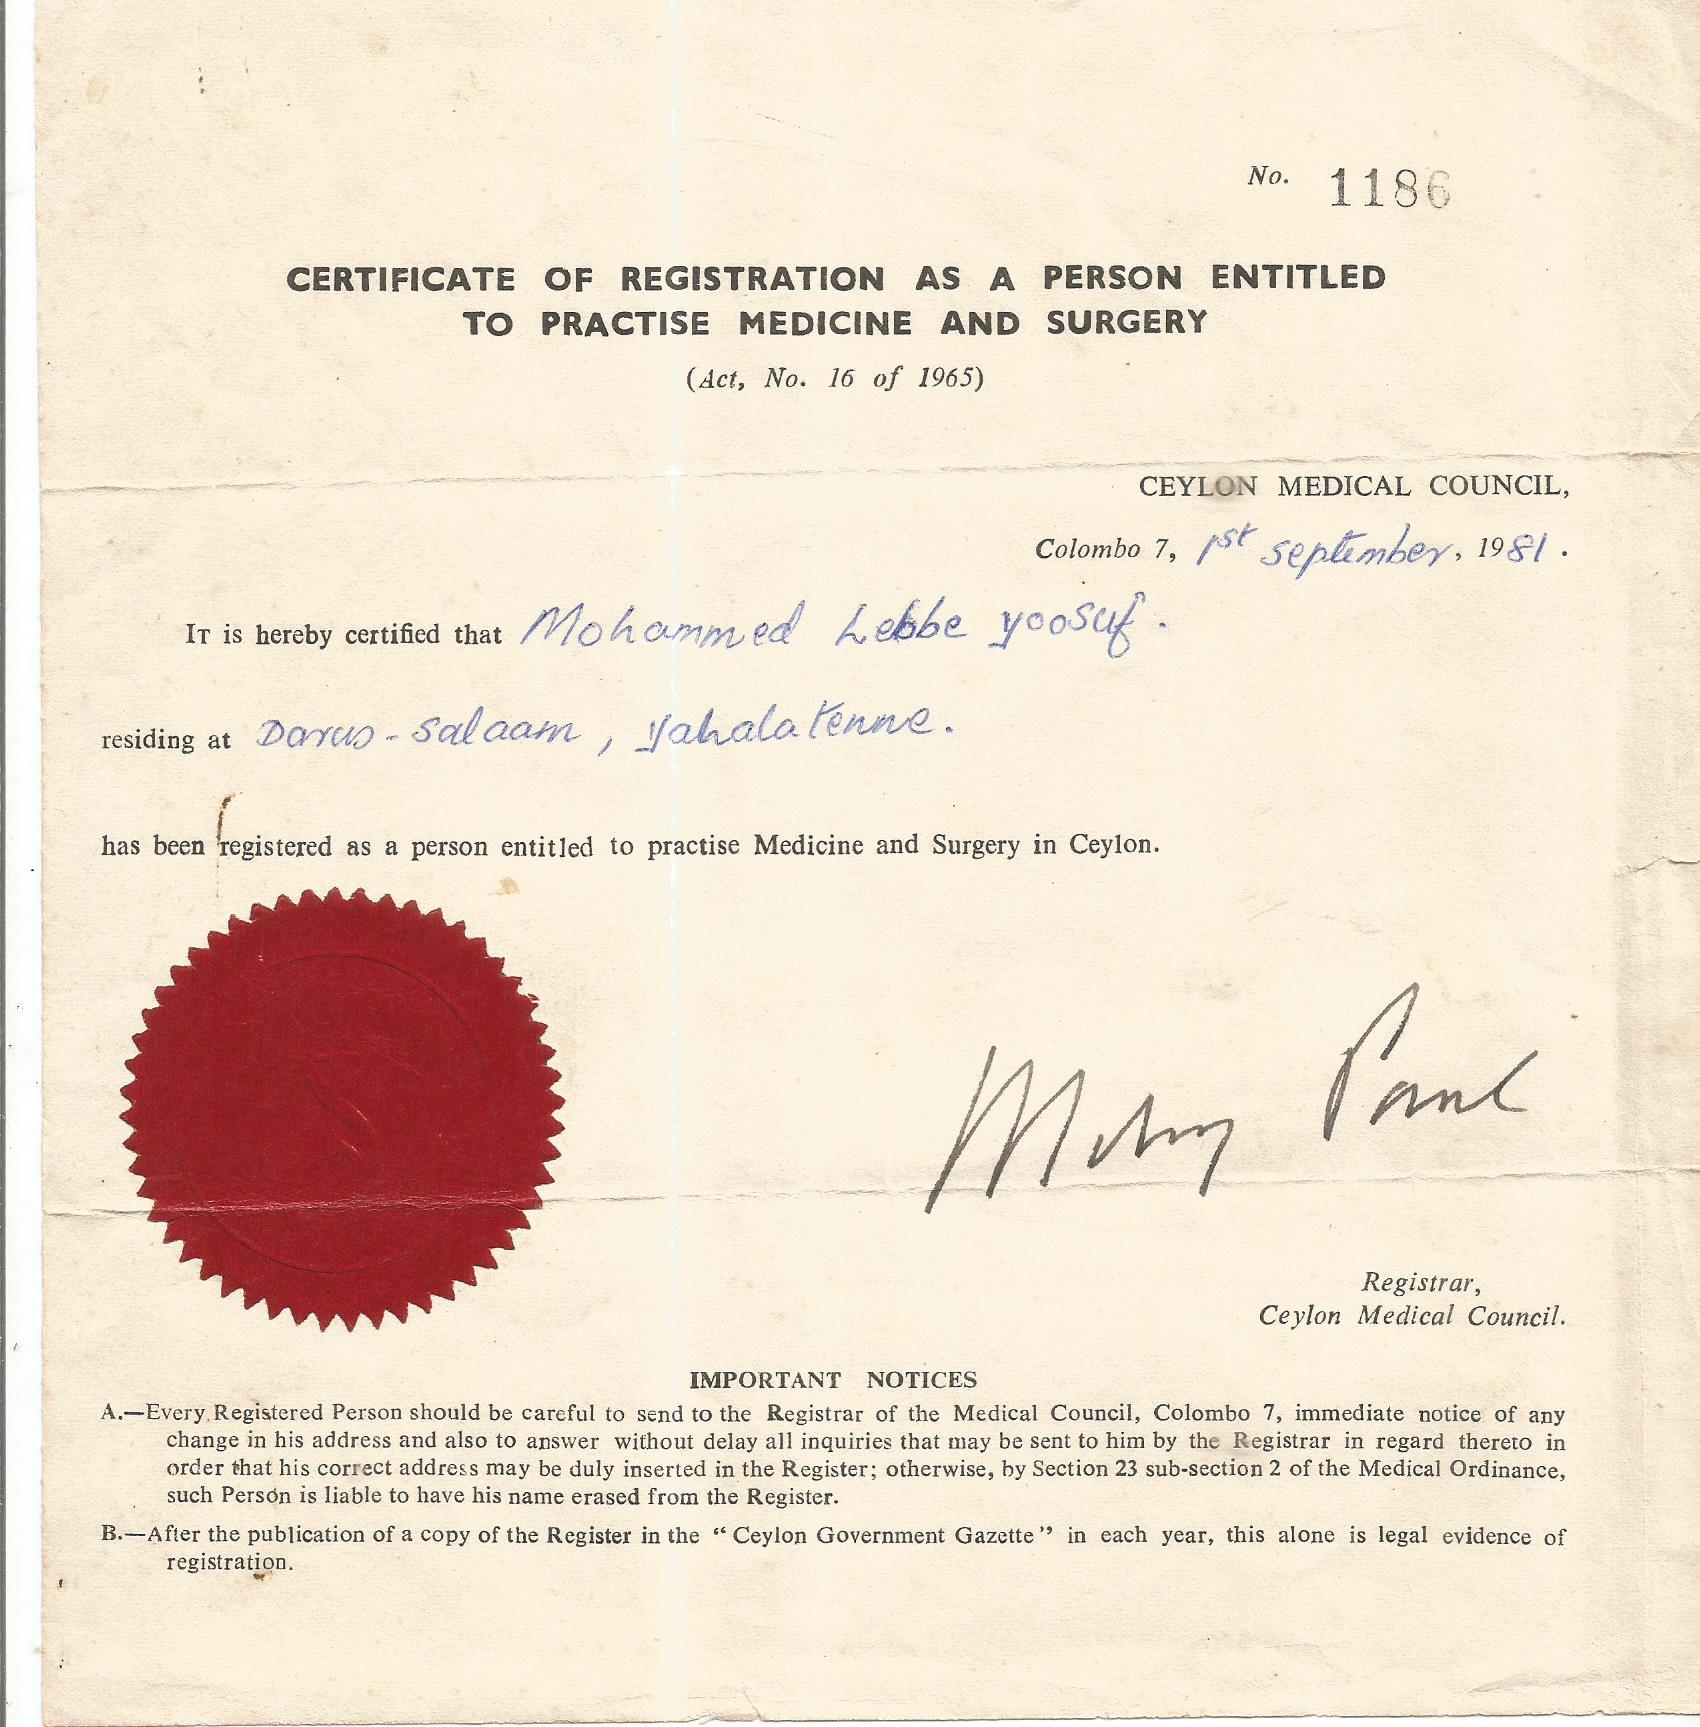 No. 1186
CERTIFICATE OF REGISTRATION AS A PERSON ENTITLED
TO PRACTISE MEDICINE AND SURGERY
(Act, No. 16 of 1965)
CEYLON MEDICAL COUNCIL,
Colombo 7, 1st september, 1981.
IT is hereby certified that Mohammed Lebbe yoosuf.
residing at Darus-Salaam, yahalatenne.
has been registered as a person entitled to practise Medicine and Surgery in Ceylon.
Registrar,
Ceylon Medical Council.
IMPORTANT NOTICES
A.—Every Registered Person should be careful to send to the Registrar of the Medical Council, Colombo 7, immediate notice of any
change in his address and also to answer without delay all inquiries that may be sent to him by the Registrar in regard thereto in
order that his correct address may be duly inserted in the Register; otherwise, by Section 23 sub-section 2 of the Medical Ordinance,
such Person is liable to have his name erased from the Register.
B.—After the publication of a copy of the Register in the “Ceylon Government Gazette” in each year, this alone is legal evidence of
registration.